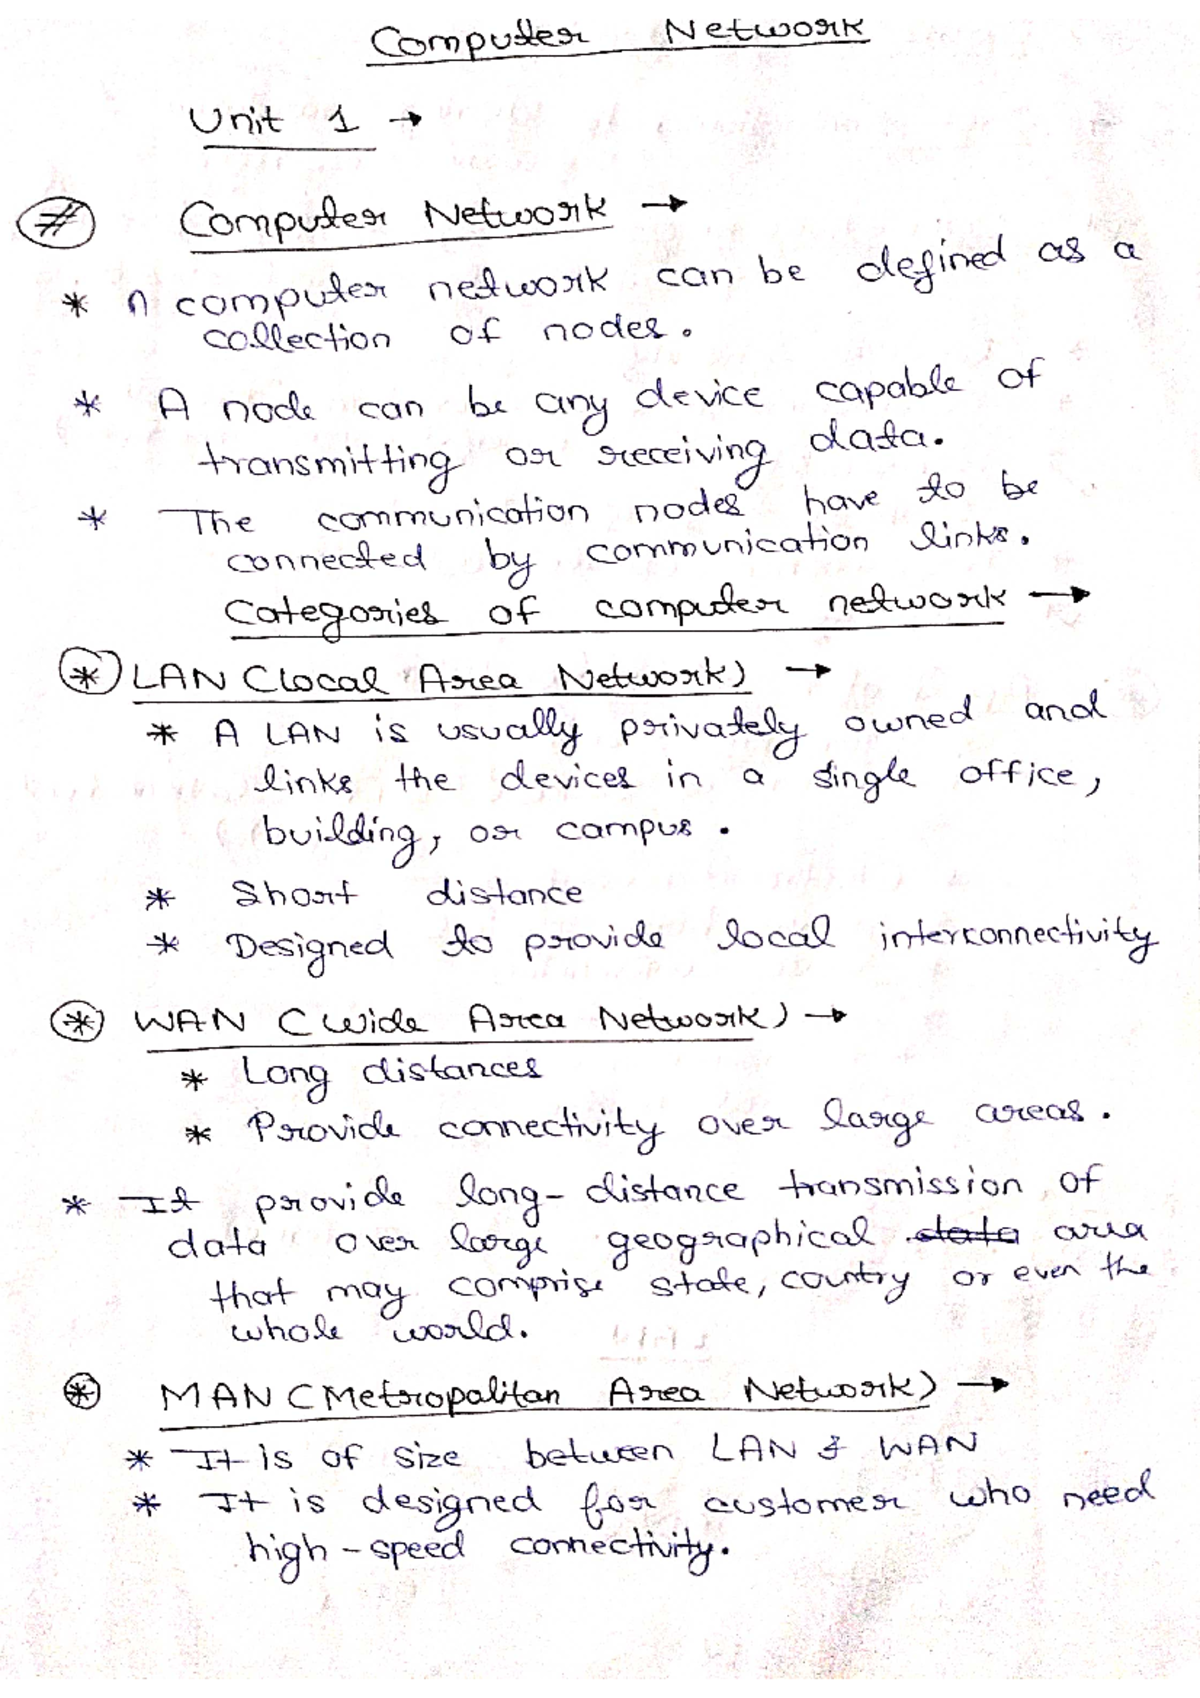 Computer Network
Unit 1 →
# Computer Network →
* A computer network can be defined as a
collection of nodes.
* A node can be any device capable of
transmitting or receiving data.
* The communication nodes have to be
connected by communication links.
Categories of computer network →
* LAN (Local Area Network) →
* A LAN is usually privately owned and
links the devices in a single office,
building, or campus.
* Short distance
* Designed to provide local interconnectivity
* WAN (Wide Area Network) →
* Long distances
* Provide connectivity over large areas.
* It provide long-distance transmission of
data over large geographical data area
that may comprise state, country or even the
whole world.
* MAN (Metropolitan Area Network) →
* It is of size between LAN & WAN
* It is designed for customer who need
high-speed connectivity.